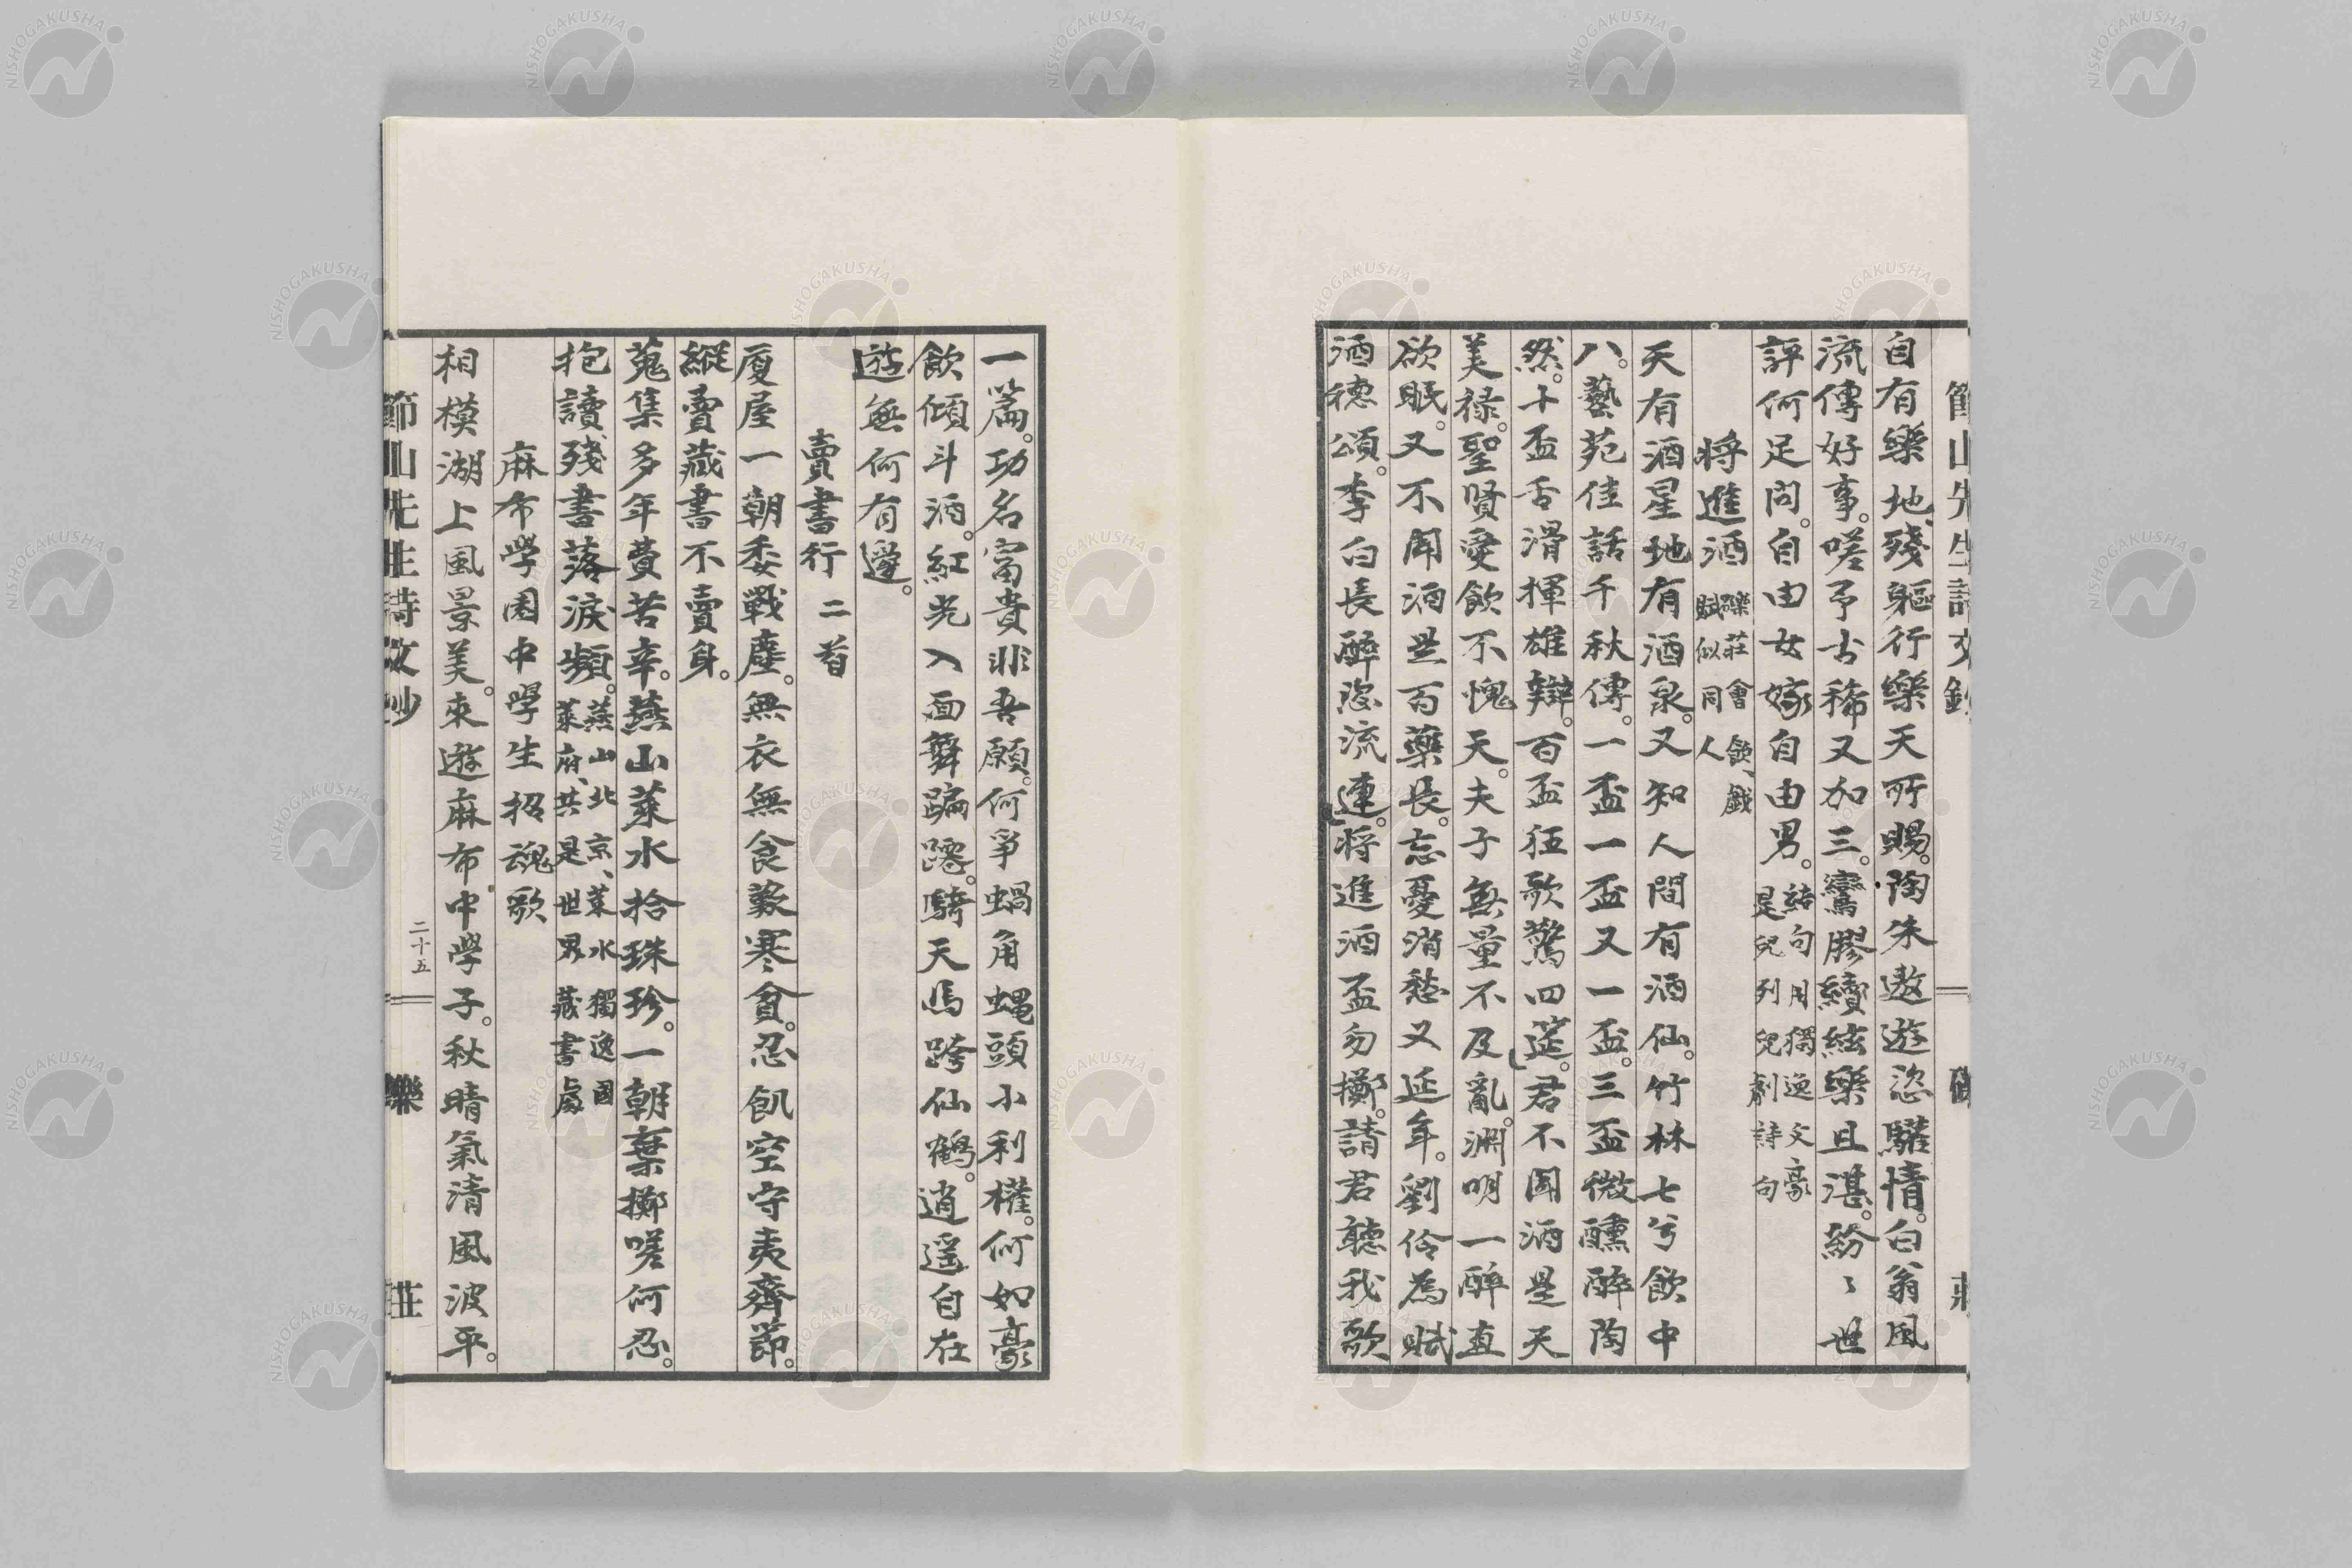 節山先生詩文鈔
自有樂地。殘軀行樂天所賜。陶朱遨遊恣驩情。白翁風
流傳好事。嗟予古稀又加三。鸞膠續絃樂且湛。紛〻世
評何足問。自由女嫁自由男。結句用獨逸文豪
是兒列兒劇詩句
將進酒 礫莊會飲、戲
賦似同人
天有酒星地有酒泉。又知人間有酒仙。竹林七兮飲中
八。藝苑佳話千秋傳。一盃一盃又一盃。三盃微醺醉陶
然。十盃舌滑揮雄辯。百盃狂歌驚四莚。君不聞酒是天
美祿。聖賢愛飲不愧天。夫子無量不及亂。淵明一醉直
欲眠。又不聞酒是百藥長。忘憂消愁又延年。劉伶為賦
酒德頌。李白長醉恣流連。將進酒盃勿擲。請君聽我歌
一篇。功名富貴非吾願。何爭蝸角蠅頭小利權。何如豪
飲傾斗酒。紅光入面舞蹁躚。騎天馬跨仙鶴。逍遥自在
遊無何有邊。
賣書行 二首
廈屋一朝委戰塵。無衣無食歎寒貧。忍飢空守夷齊節。
縱賣藏書不賣身。
蒐集多年費苦辛。燕山萊水拾珠珍。一朝棄擲嗟何忍。
抱讀殘書落淚頻。燕山北京、萊水獨逸國
萊府、共是世界藏書處
麻布學園中學生招魂歌
相模湖上風景美。來遊麻布中學子。秋晴氣清風波平。
節山先生詩文鈔
二十五
樂
莊
NISHOGAKUSHA